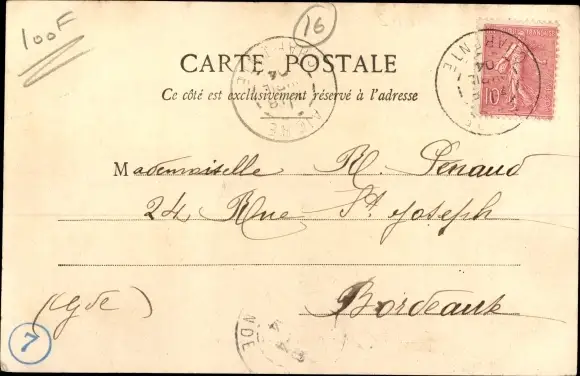 100F
16
CARTE POSTALE
Ce côté est exclusivement réservé à l'adresse
10
Mademoiselle R. Penaud
24 Rue St Joseph
Bordeaux
(Gde)
7
NDE